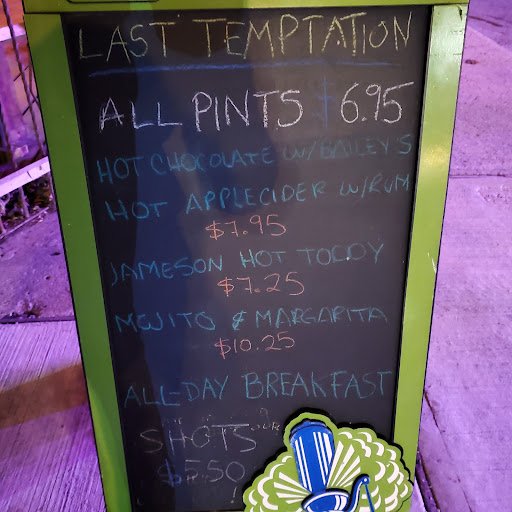 LAST TEMPTATION
ALL PINTS $6.95
HOT CHOCOLATE W/BAILEY'S
HOT APPLECIDER W/RUM
$7.95
JAMESON HOT TODDY
$7.25
MOJITO & MARGARITA
$10.25
ALL-DAY BREAKFAST
SHOTS
$5.50